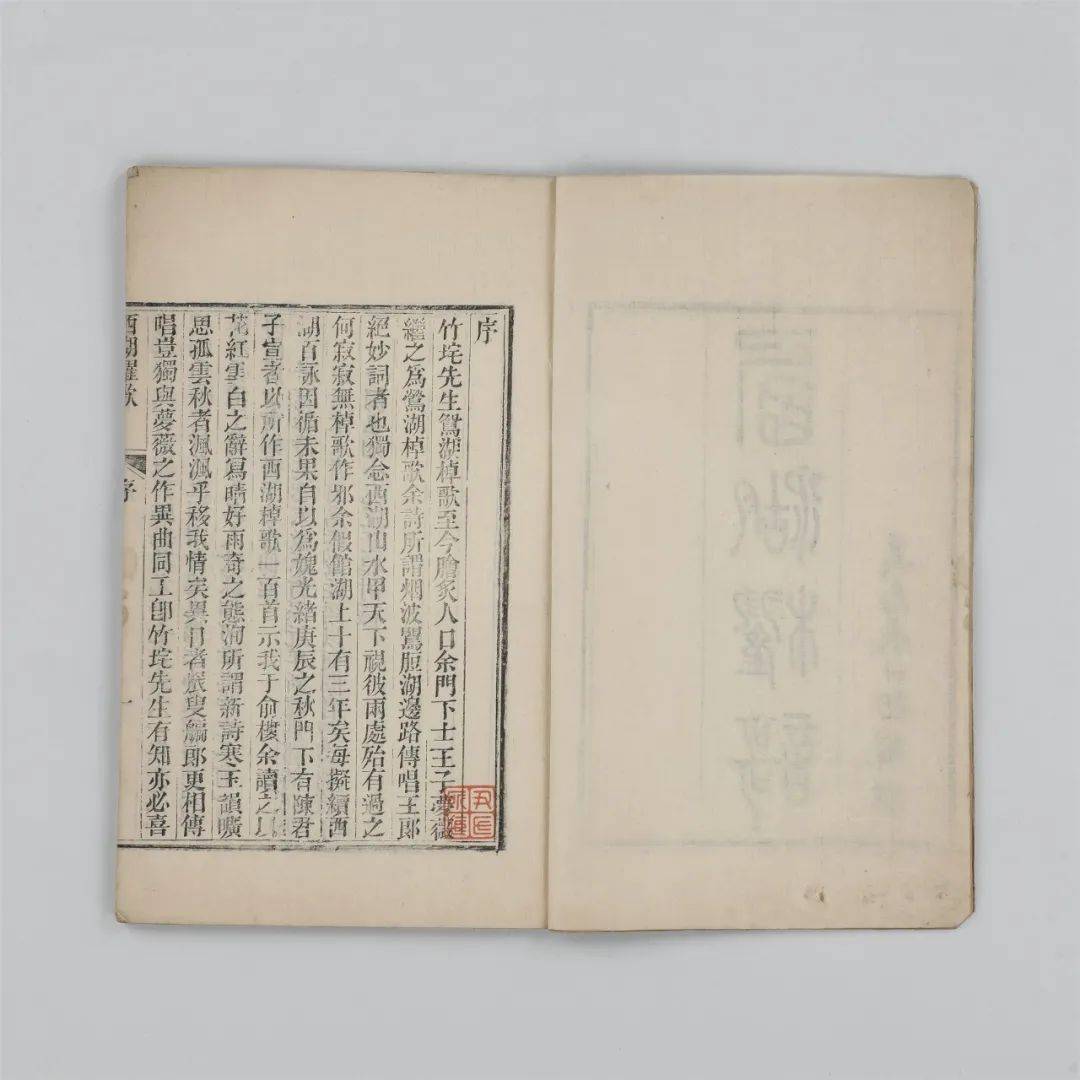 序
竹垞先生鴛湖棹歌至今膾炙人口余門下士王子夢薇
繼之爲鶯湖棹歌余詩所謂烟波鶯脰湖邊路傳唱王郎
絕妙詞者也獨念西湖山水甲天下視彼兩處殆有過之
何寂寂無棹歌作邪余假館湖上十有三年矣每擬續西
湖百詠因循未果自以爲媿光緒庚辰之秋門下有陳君
子宣者以所作西湖棹歌一百首示我于俞樓余讀之以
花紅雲白之辭寫晴好雨奇之態洵所謂新詩寒玉韻曠
思孤雲秋者渢渢乎移我情矣異日者漁叟艑郎更相傳
唱豈獨與夢薇之作異曲同工卽竹垞先生有知亦必喜
西湖櫂歌
序
一
西湖櫂歌